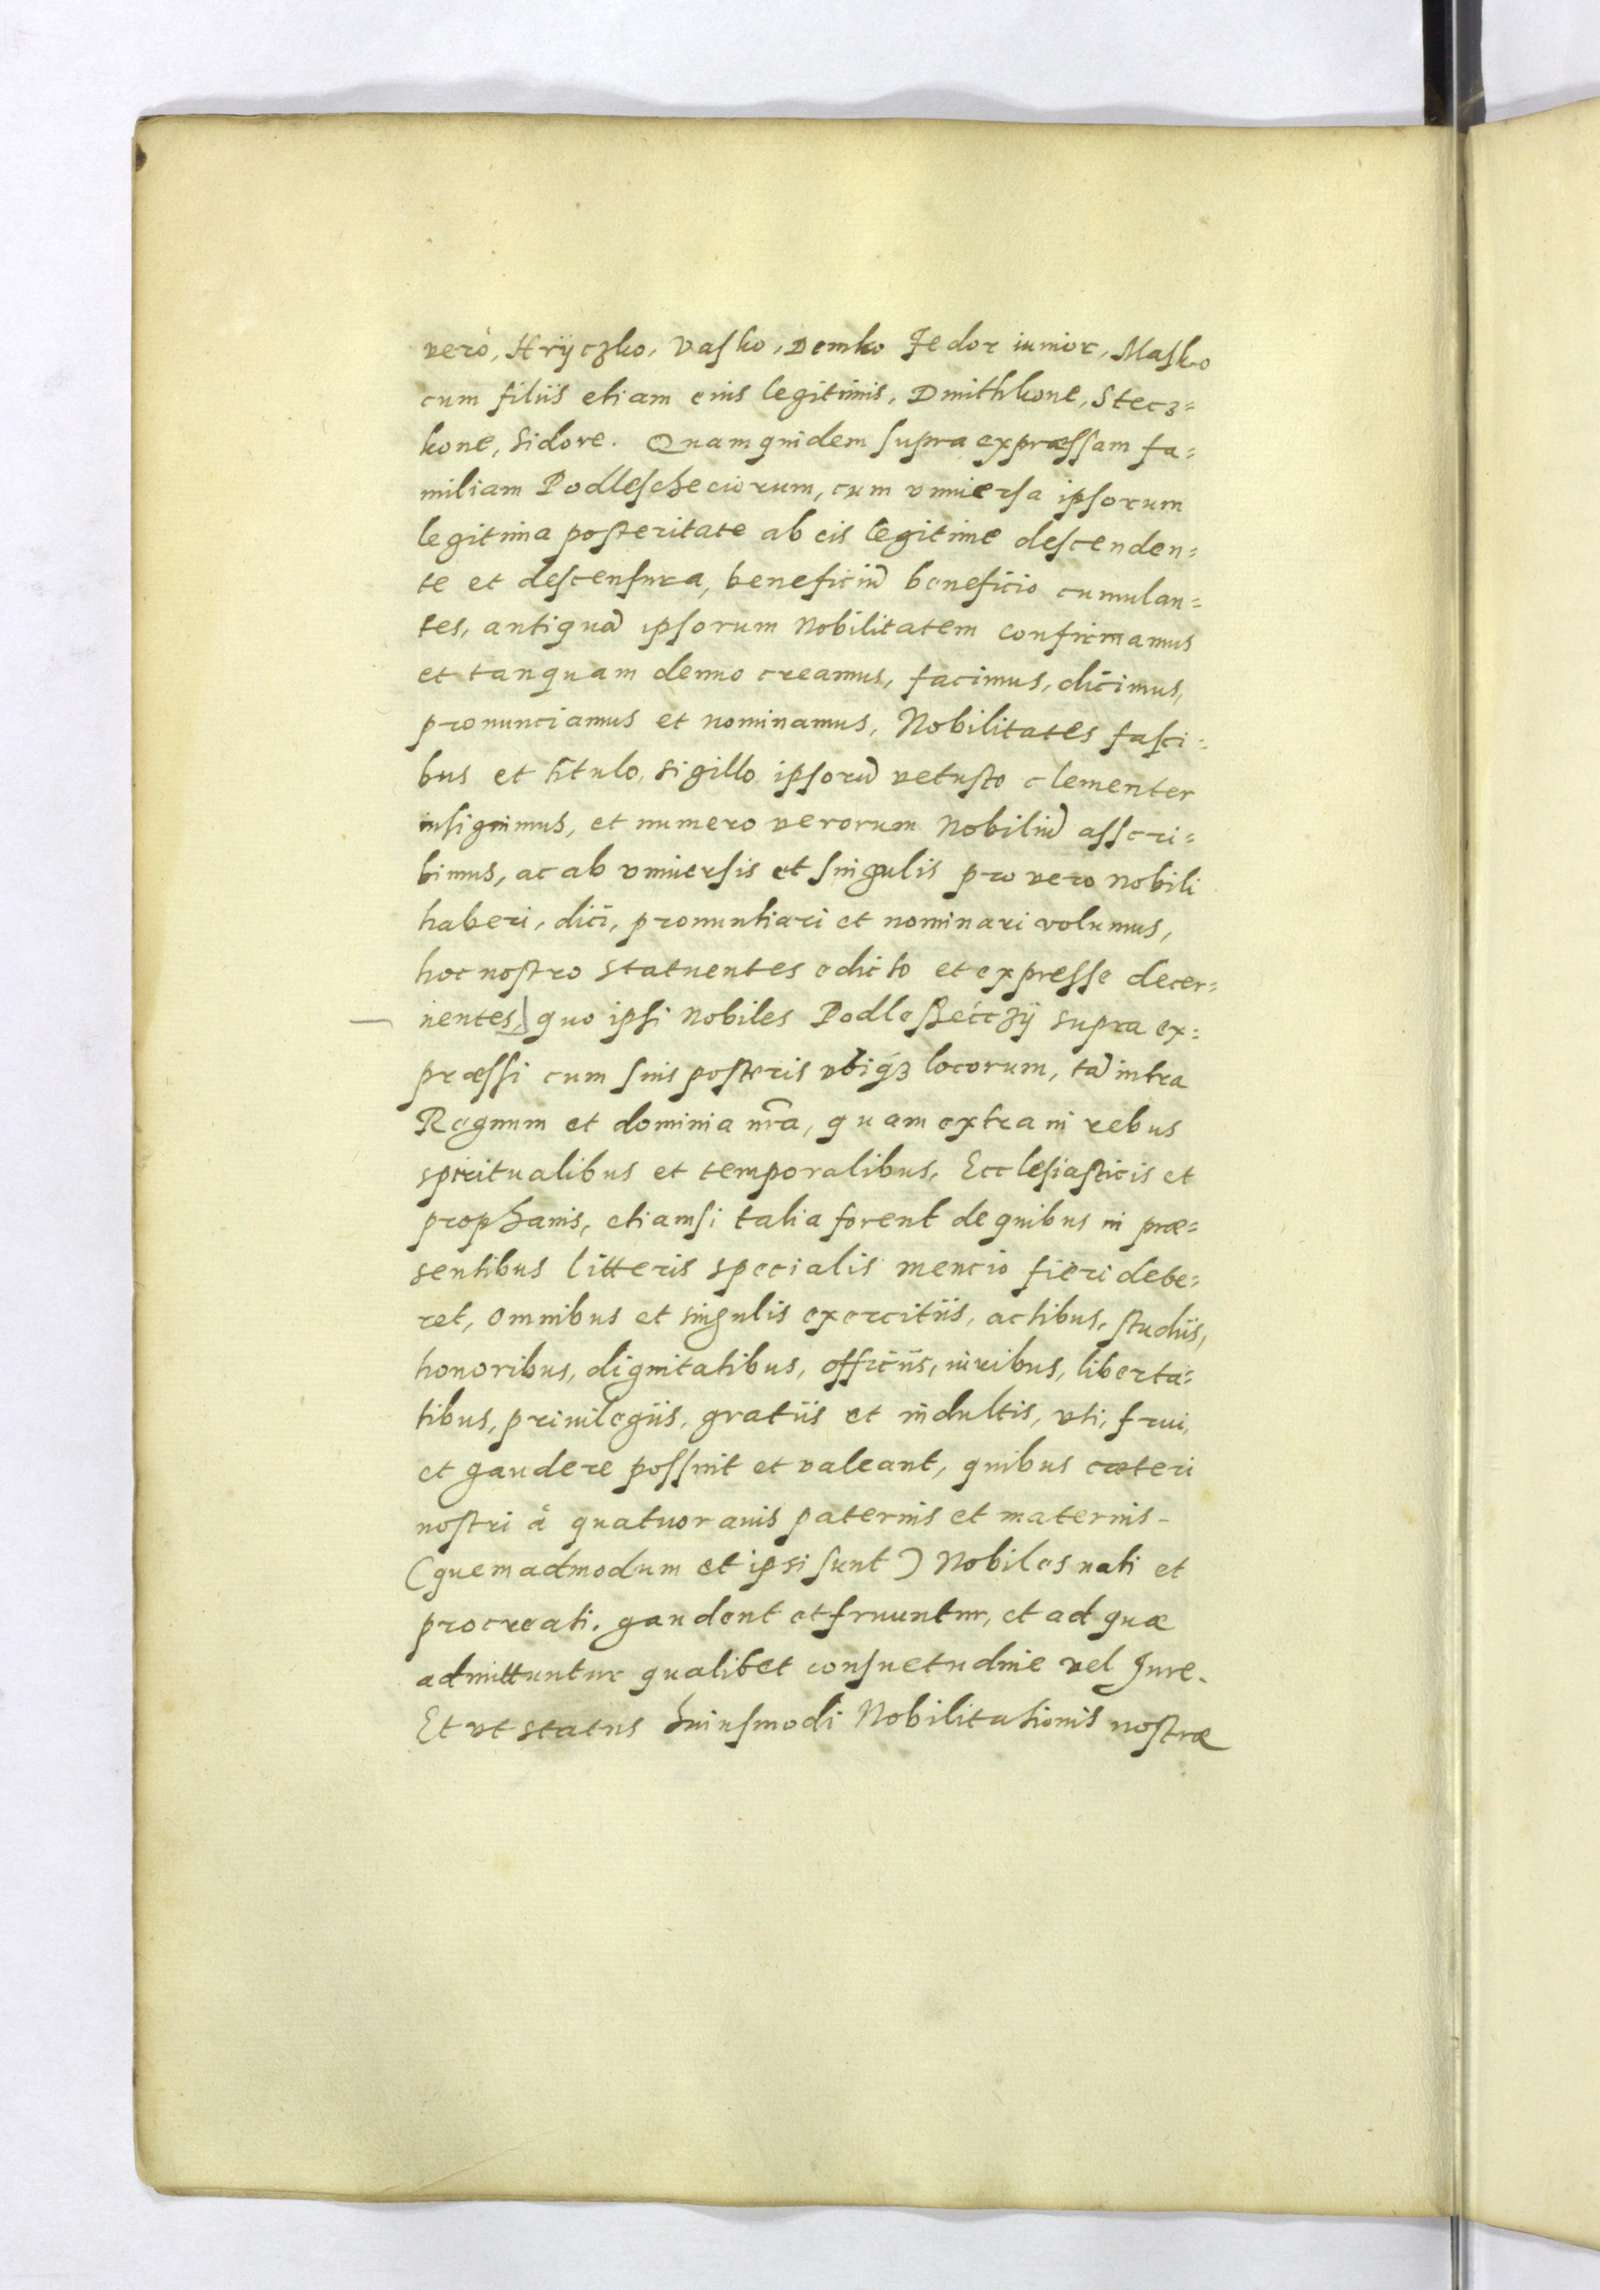 verò, Hrÿczko, Vasko, Demko Fedor iunior, Masko
cum filiis etiam eius legitimis, Dmithkone, Stecz=
kone, Sidore. Quam quidem supra expræssam fa=
miliam Podleschecciorum, cum vniuersa ipsorum
legitima posteritate ab eis legitime descenden=
te et descensura, beneficiū beneficio cumulan=
tes, antiquā ipsorum Nobilitatem confirmamus
et tanquam denuo creamus, facimus, dicimus,
pronunciamus et nominamus, Nobilitates fasci=
bus et titulo, sigillo ipsorū vetusto clementer
insignimus, et numero verorum Nobiliū asscri=
bimus, ac ab vniuersis et singulis pro vero nobili
haberi, dici, pronuntiari et nominari volumus,
hoc nostro statuentes edicto et expresse decer=
nentes, quo ipsi Nobiles Podleßéczÿ supra ex=
præssi cum suis posteris vbiq́ȝ locorum, tā intra
Regnum et dominia nr̄a, quam extra in rebus
spiritualibus et temporalibus, Ecclesiasticis et
prophanis, etiamsi talia forent de quibus in præ=
sentibus litteris specialis mencio fieri debe=
ret, omnibus et singulis exercitiis, actibus, studiis,
honoribus, dignitatibus, officiis, iuribus, liberta=
tibus, priuilegiis, gratiis et indultis, vti, frui,
et gaudere possint et valeant, quibus cæteri
nostri à quatuor auis paternis et maternis
(quemadmodum et ipsi sunt) Nobiles nati et
procreati. gaudent et fruuntur, et ad quæ
admittuntur qualibet consuetudine vel Jure.
Et vt status huiusmodi Nobilitationis nostræ